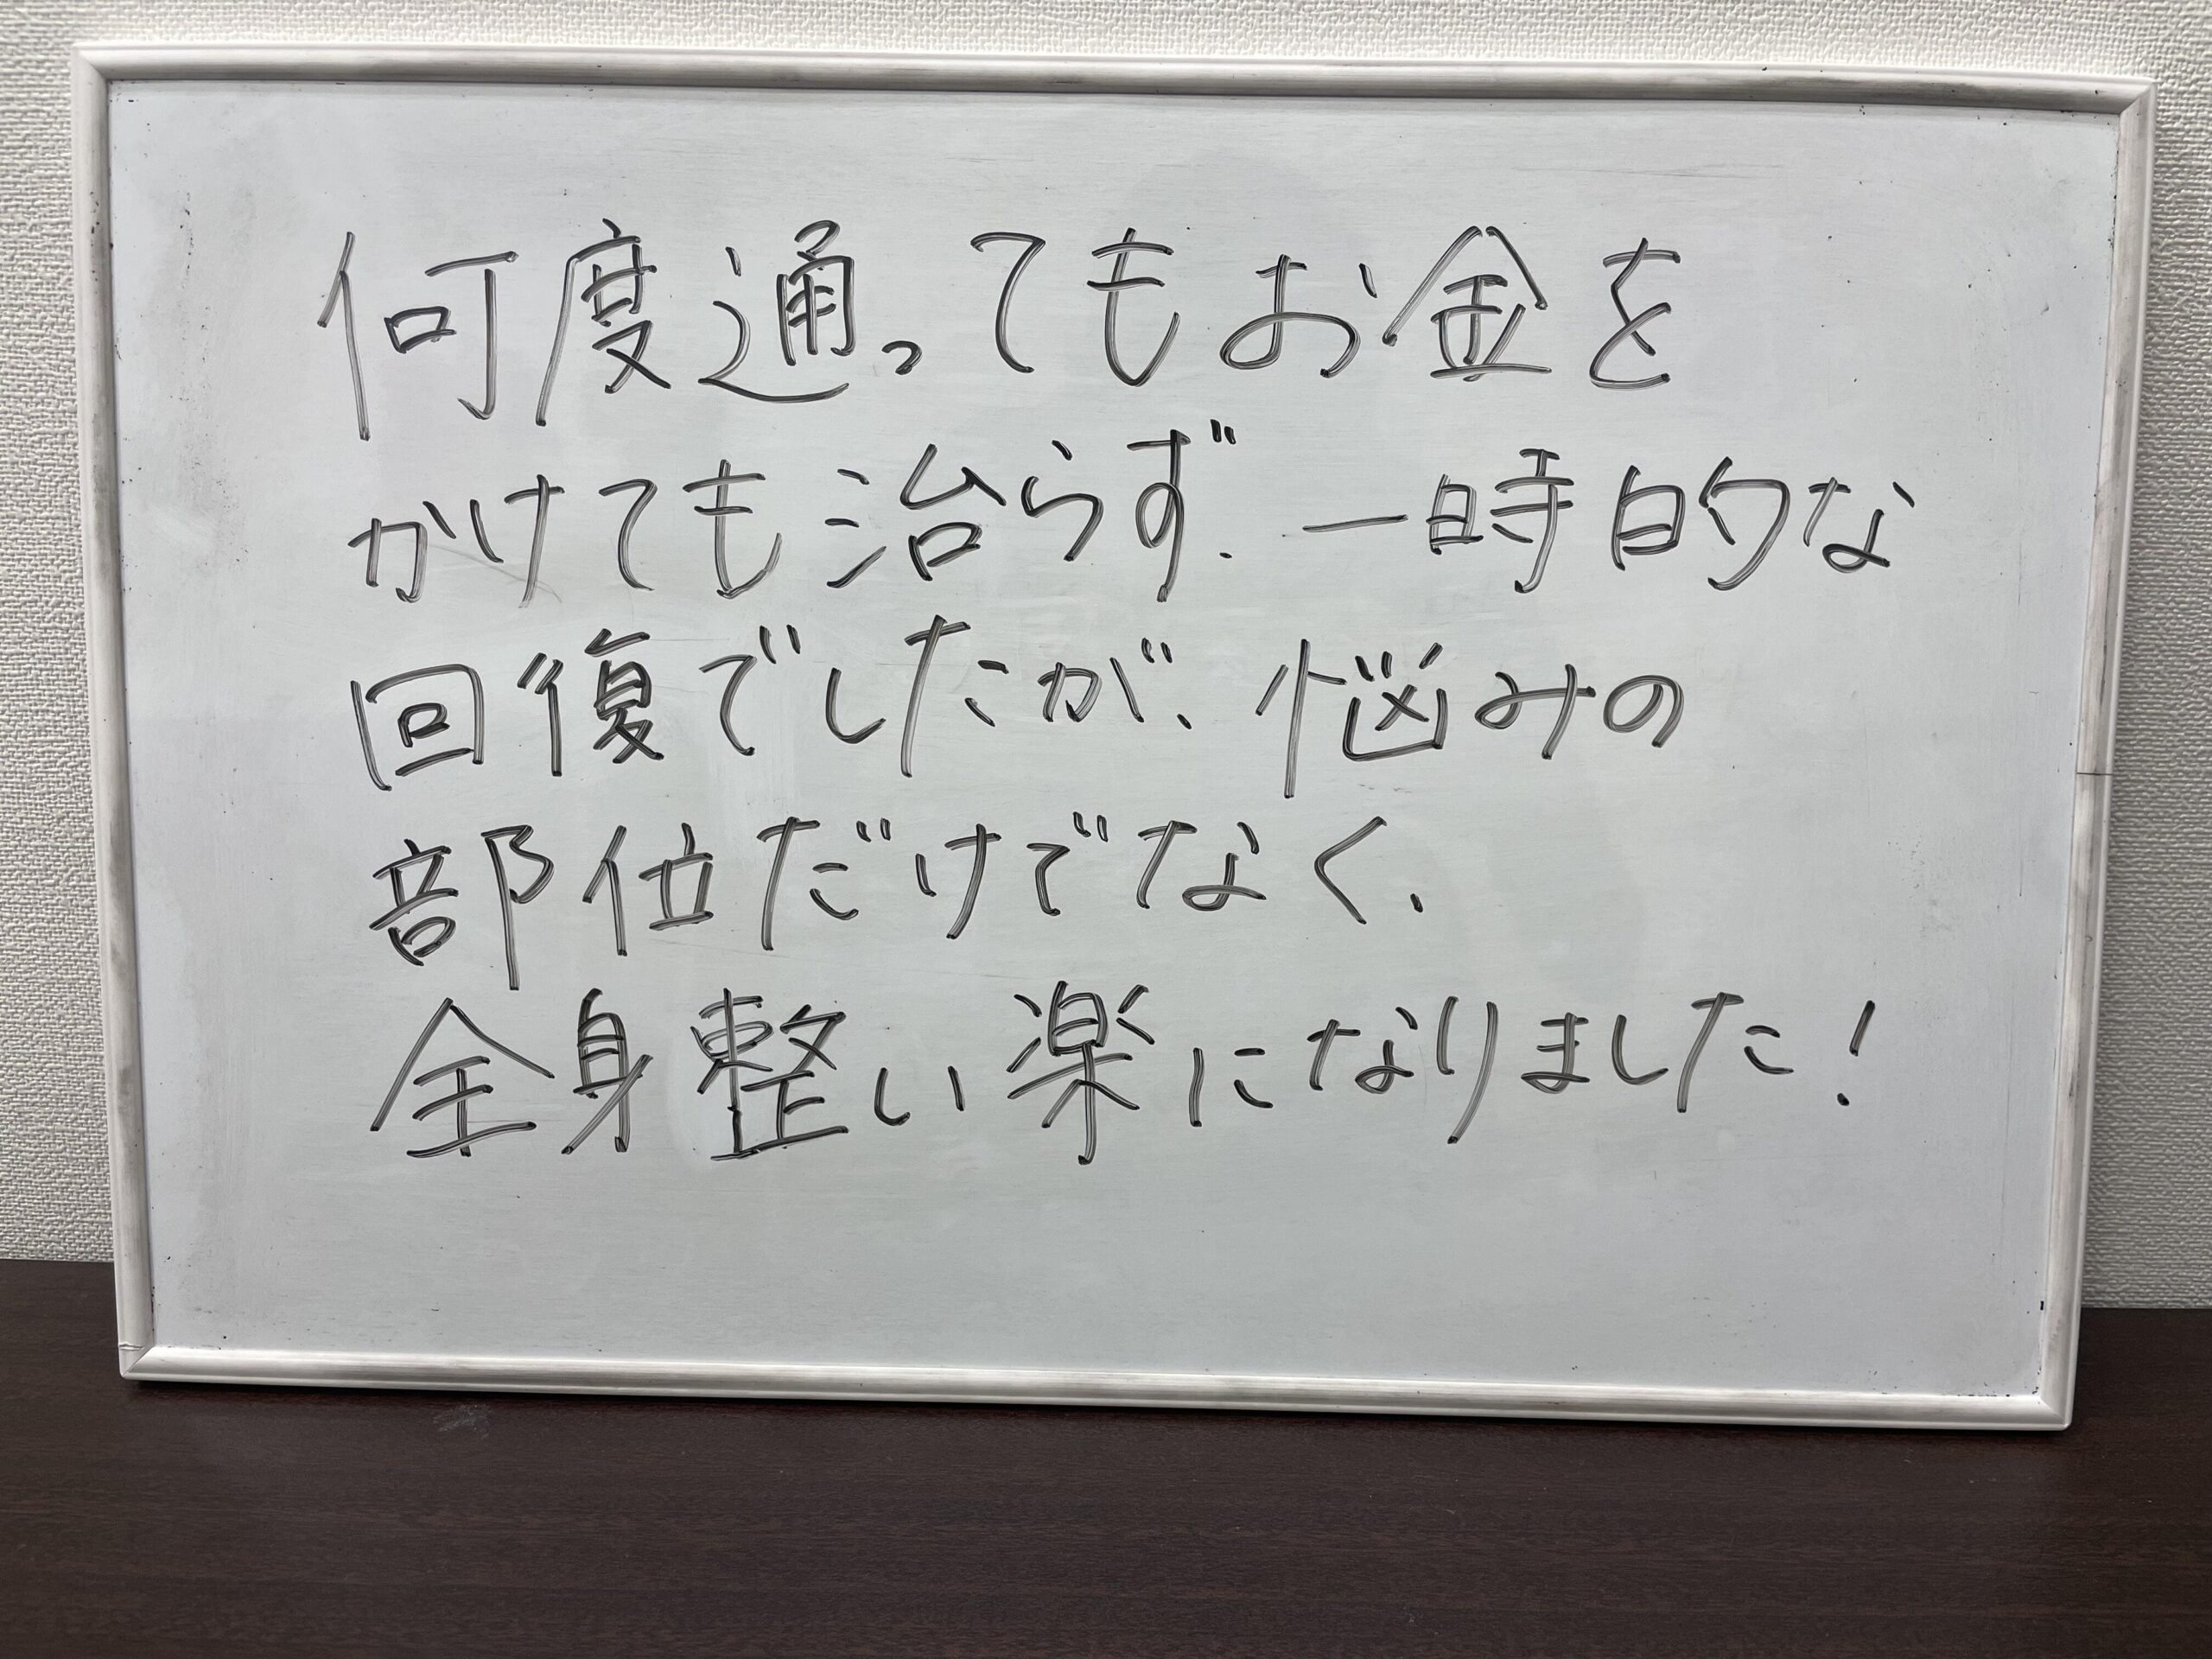 何度通ってもお金を
かけても治らず、一時的な
回復でしたが、悩みの
部位だけでなく、
全身整い楽になりました!